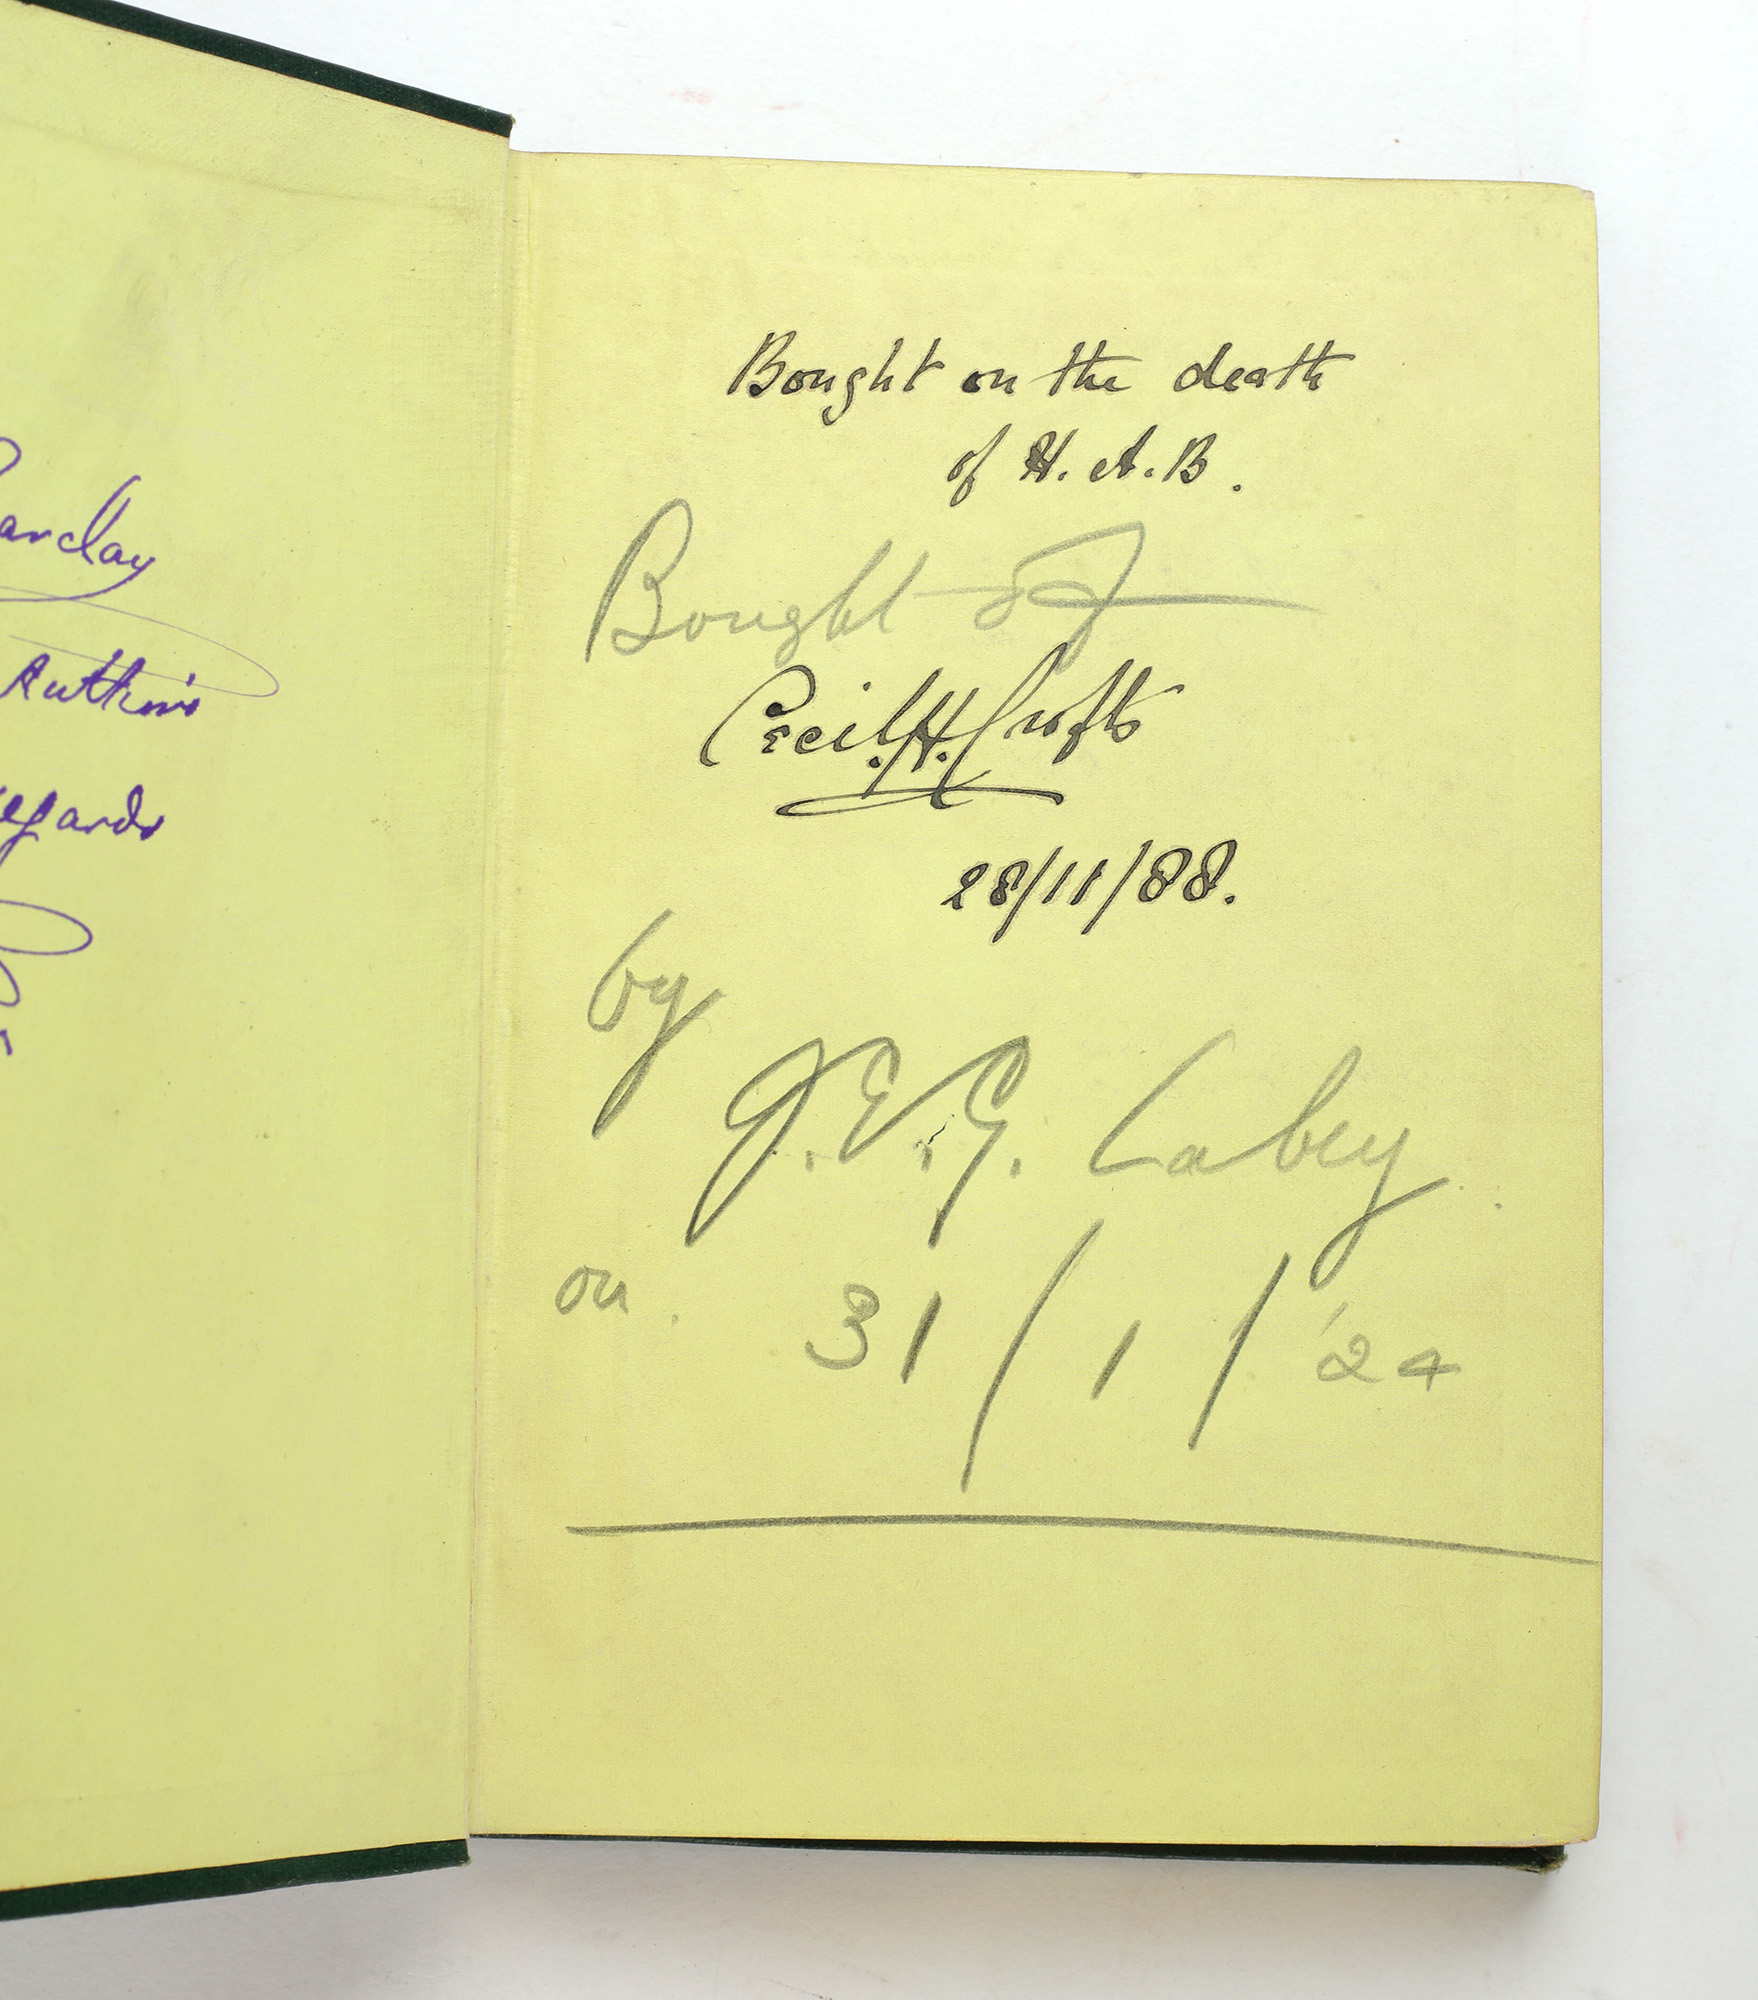 arclay
Author's
egards
Bought on the death
of H. A. B.
Bought of
Cecil. H. Crofts
28/11/88.
by
J. E. G. Labey
on 31/1/'24